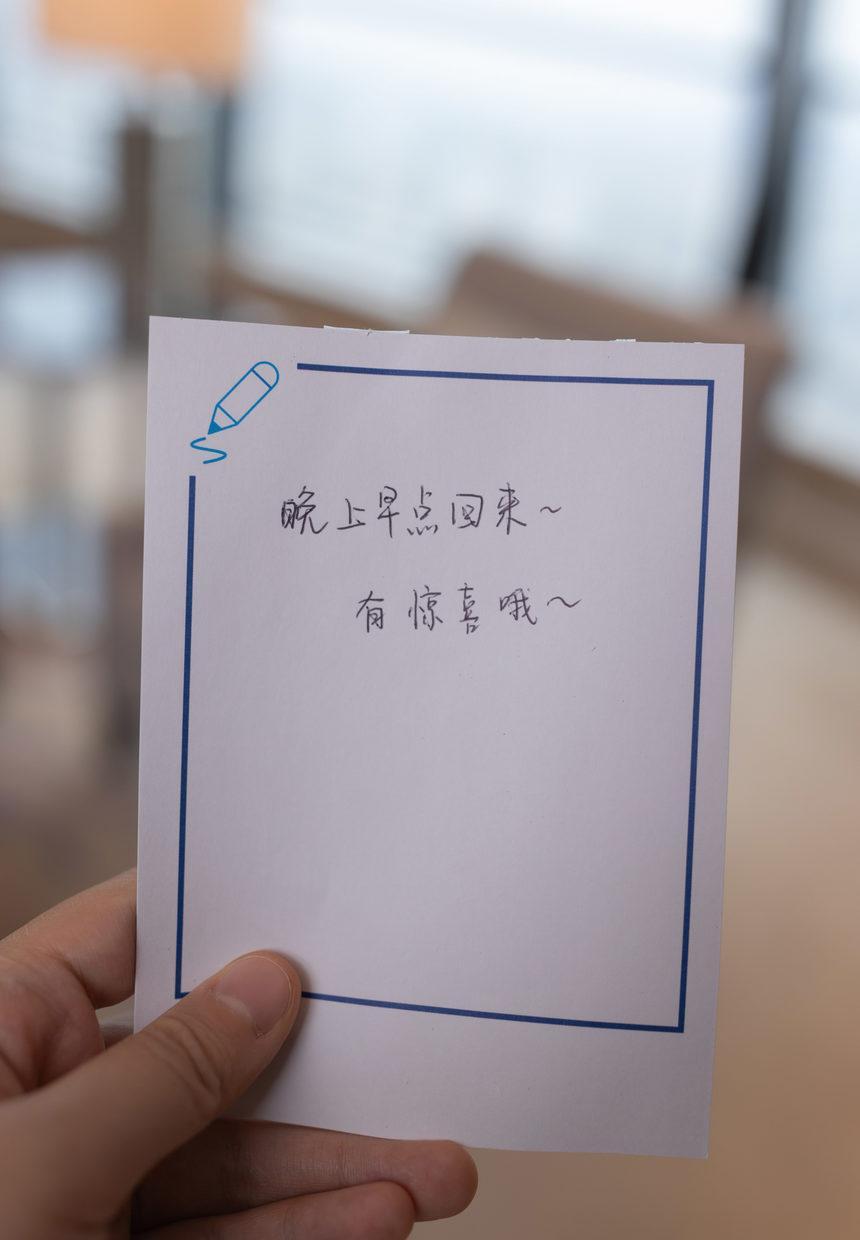 晚上早点回来~
有惊喜哦~